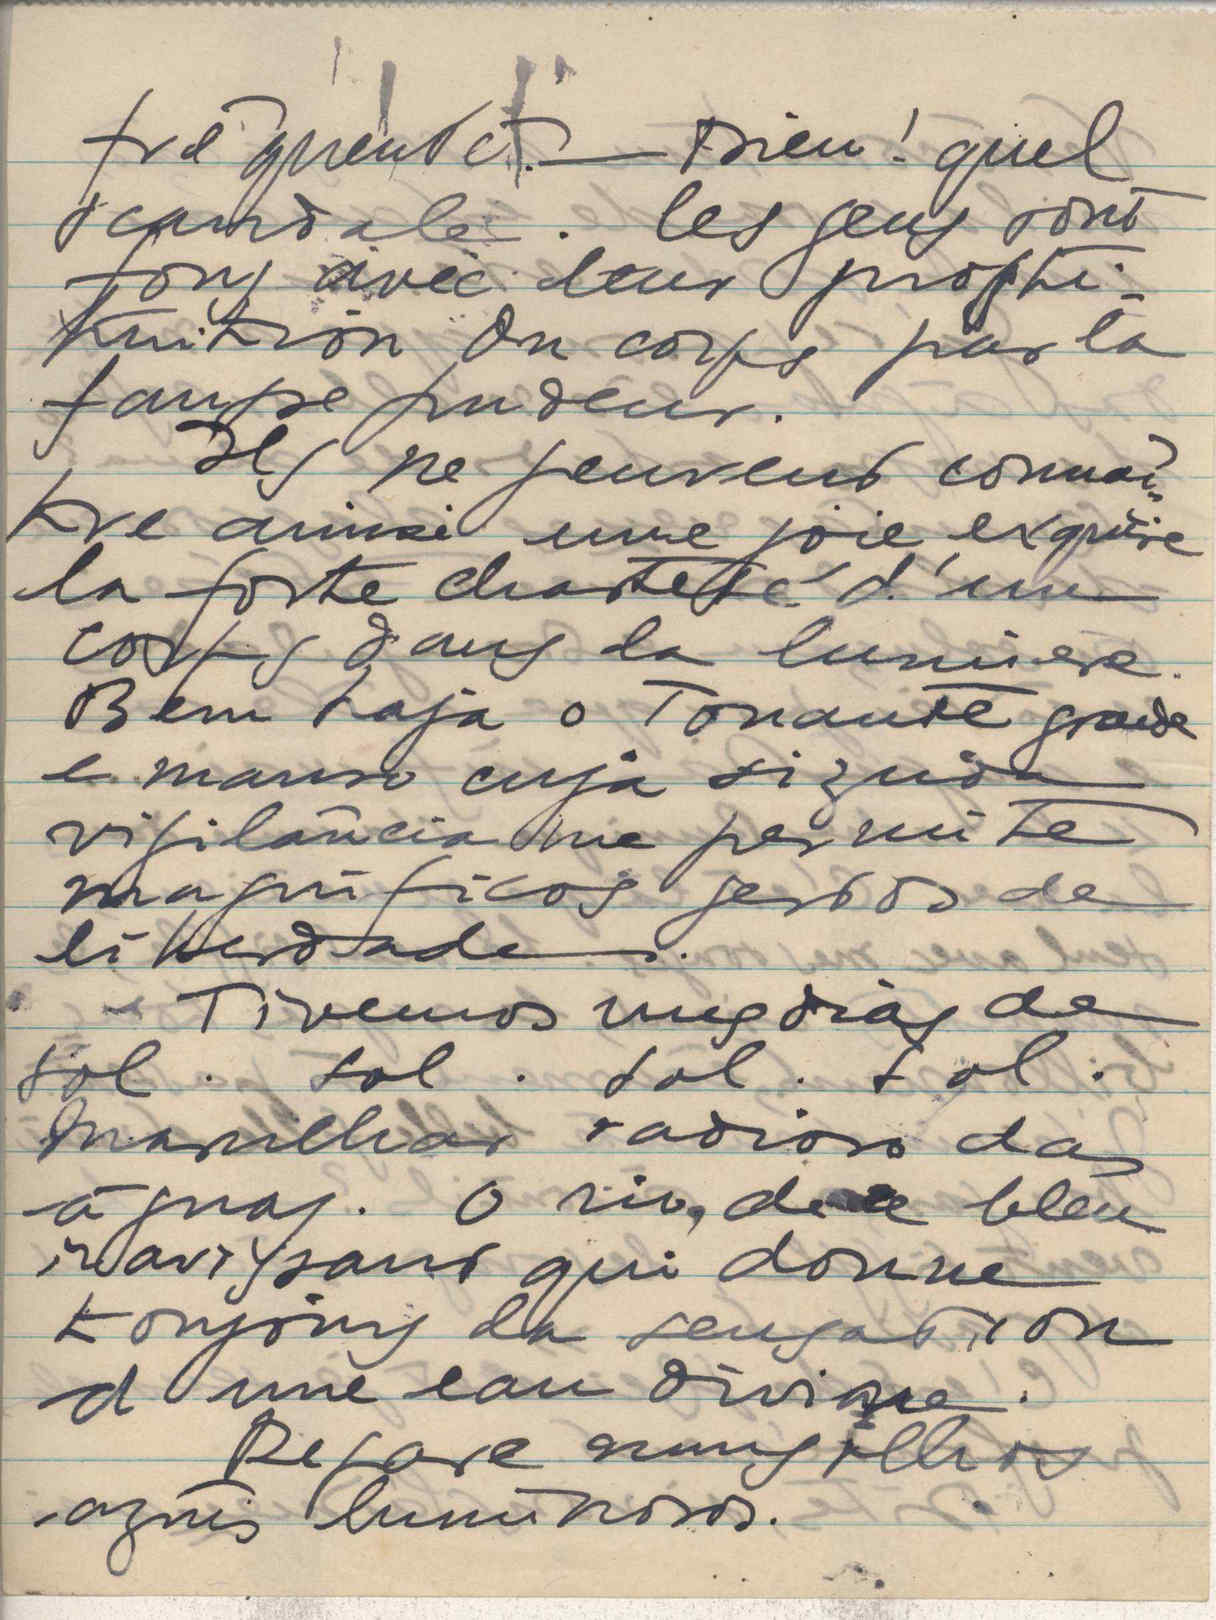 fréquenté? — Dieu! quel
scandale. les gens sont
fous avec leur prosti-
tuition du corps par la
fausse pudeur.
Ils ne peuvent connaî-
tre ainsi une joie exquise
la forte chasteté d'un
corps dans la lumière.
Bem haja o Tonante grande
e manso cuja
vigilância me permite
magníficos gestos de
liberdade.
Tivemos uns dias de
sol. sol. sol. sol.
Marulhar radioso das
águas. O rio, de ce bleu
ravissant qui donne
toujours la sensation
d une eau divine.
Repare nuns olhos
azuis luminosos.